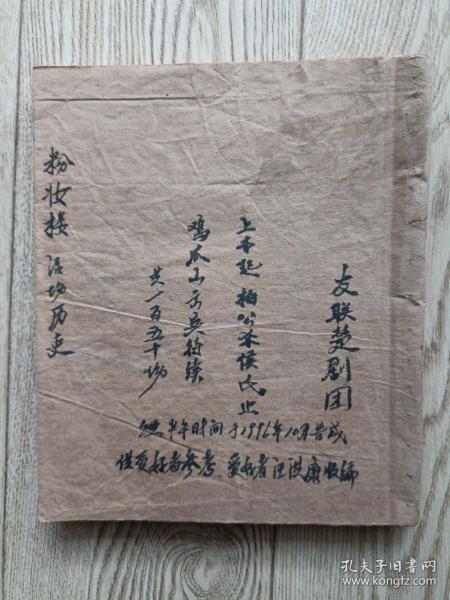 友联楚剧团
上本起 柏公 侯氏止
鸡爪山 兵待续
共一百五十场
粉妆楼 历史
半年时间于1996年10月告成
供爱好者参考.爱好者汪洪康收编
孔夫子旧书网
www.kongfz.com